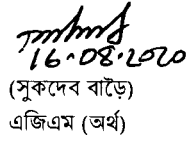 16-08-2020
(সুকদেব বাড়ৈ)
এজিএম (অর্থ)